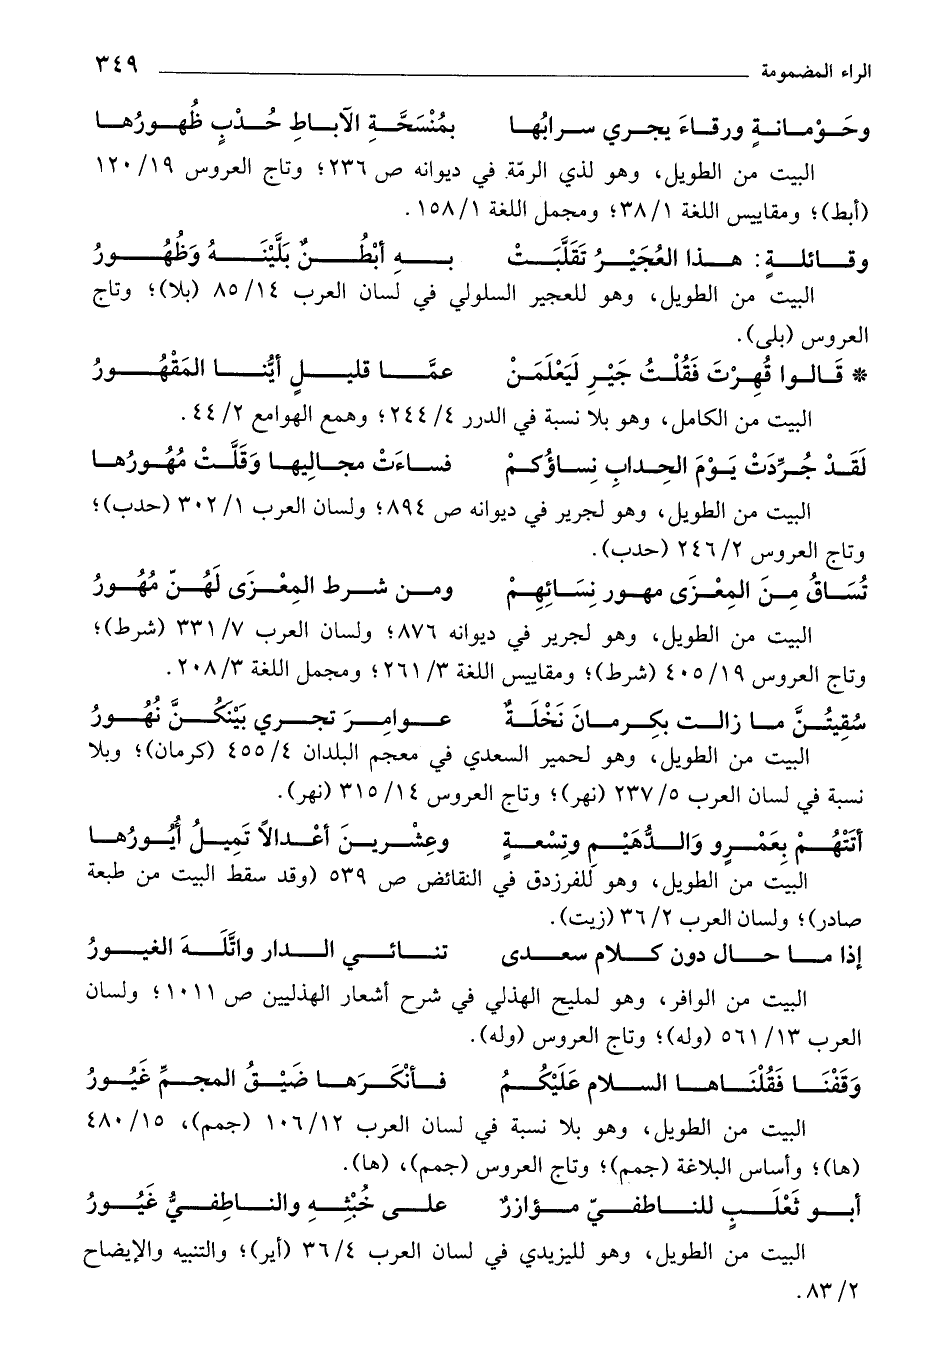 الراء المضمومة ٣٤٩
وحَـوْمـانـةٍ ورقـاءَ يجـري سـرابُهـا بمُنْسَحَّـةِ الآبـاطِ حُـدْبٍ ظُهـورُهـا
البيت من الطويل، وهو لذي الرمّة في ديوانه ص ٢٣٦؛ وتاج العروس ١٩/ ١٢٠
(أبط)؛ ومقاييس اللغة ١/ ٣٨؛ ومجمل اللغة ١/ ١٥٨.
وقـائلـةٍ: هـذا العُجَيْـرُ تَقَلَّبَـتْ بـهِ أبْطُـنٌ بَلَّيْنَـهُ وَظُهُـورُ
البيت من الطويل، وهو للعجير السلولي في لسان العرب ١٤/ ٨٥ (بلا)؛ وتاج
العروس (بلى).
* قَـالـوا قُهِـرْتَ فَقُلْـتُ جَيْـرِ لَيَعْلَمَـنْ عمَّـا قليـلٍ أيُّنـا المَقْهُـورُ
البيت من الكامل، وهو بلا نسبة في الدرر ٤/ ٢٤٤؛ وهمع الهوامع ٢/ ٤٤.
لَقَـدْ جُـرِّدَتْ يَـوْمَ الحِـدابِ نِسـاؤُكـمْ فسـاءَتْ مجـاليهـا وَقَلَّـتْ مُهُـورُهـا
البيت من الطويل، وهو لجرير في ديوانه ص ٨٩٤؛ ولسان العرب ١/ ٣٠٢ (حدب)؛
وتاج العروس ٢/ ٢٤٦ (حدب).
تُسَـاقُ مِـنَ المِعْـزَى مهـور نِسَـائِهِـمْ ومـن شـرط المِعْـزَى لَهُـنّ مُهُـورُ
البيت من الطويل، وهو لجرير في ديوانه ٨٧٦؛ ولسان العرب ٧/ ٣٣١ (شرط)؛
وتاج العروس ١٩/ ٤٠٥ (شرط)؛ ومقاييس اللغة ٣/ ٢٦١؛ ومجمل اللغة ٣/ ٢٠٨.
سُقِيتُـنَّ مـا زالـت بكـرمـانَ نَخْلَـةٌ عـوامِـرَ تجـري بَيْنَكُـنَّ نُهُـورُ
البيت من الطويل، وهو لحمير السعدي في معجم البلدان ٤/ ٤٥٥ (كرمان)؛ وبلا
نسبة في لسان العرب ٥/ ٢٣٧ (نهر)؛ وتاج العروس ١٤/ ٣١٥ (نهر).
أتَتْهُـمْ بِعَمْـرٍو وَالـدُّهَيْـمِ وتِسْعـةٍ وعِشْـريـنَ أعْـدالاً تَميـلُ أُيُـورُهـا
البيت من الطويل، وهو للفرزدق في النقائض ص ٥٣٩ (وقد سقط البيت من طبعة
صادر)؛ ولسان العرب ٢/ ٣٦ (زيت).
إذا مـا حـال دون كـلامِ سعـدى تنـائـي الـدار واتَّلَـهَ الغيـورُ
البيت من الوافر، وهو لمليح الهذلي في شرح أشعار الهذليين ص ١٠١١؛ ولسان
العرب ١٣/ ٥٦١ (وله)؛ وتاج العروس (وله).
وَقَفْنَـا فَقُلْنَـاهـا السـلام عَلَيْكُـمُ فـأنْكَـرَهـا ضَيْـقُ المجـمِّ غَيُـورُ
البيت من الطويل، وهو بلا نسبة في لسان العرب ١٢/ ١٠٦ (جمم)، ١٥/ ٤٨٠
(ها)؛ وأساس البلاغة (جمم)؛ وتاج العروس (جمم)، (ها).
أبـو ثَعْلَـبٍ للنـاطفـيّ مـؤازرٌ علـى خُبْثِـهِ والنـاطِفـيُّ غَيُـورُ
البيت من الطويل، وهو لليزيدي في لسان العرب ٤/ ٣٦ (أير)؛ والتنبيه والإيضاح
٢/ ٨٣.